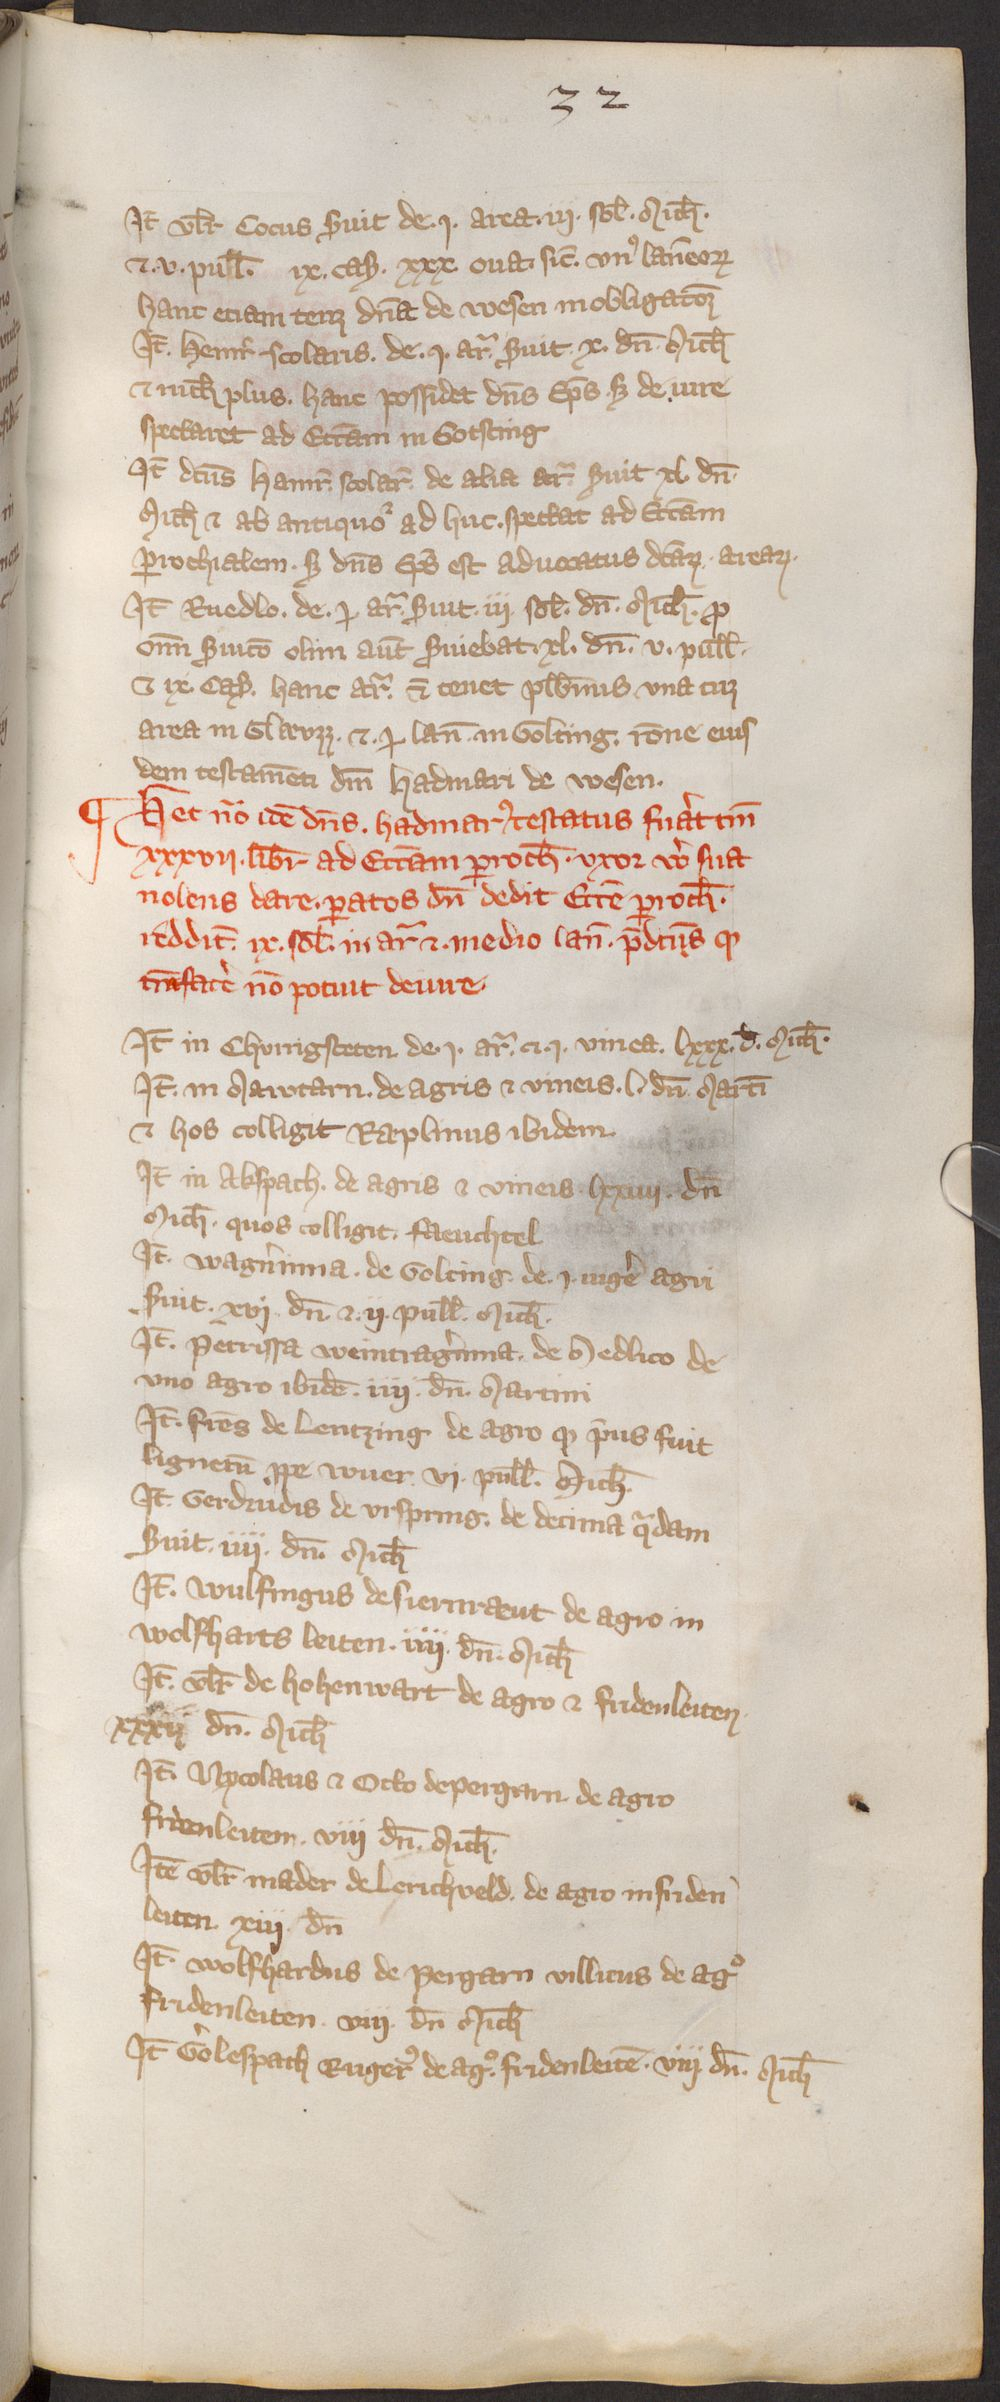 32
It̄ vlr̄ Cocus s̄uit de .j. area .iij. sol̄. Mich̄.
⁊ .v. pull̄. ix. cas̄. xxx. oua. sic̄. vnꝰ laneorꝝ
hanc eciam tenꝫ dn̄a de wesen in obligatoꝫ
It̄. Henr̄ scolaris. de .j. ar̄. s̄uit .x. dn̄. Mich̄
⁊ nich̄ plus. hanc possidet dn̄s Ep̄s. sꝫ de iure
spectaret ad Ecc̄am in Gotsting
It̄ dc̄us Hainr̄. scolar̄. de alia ar̄. s̄uit xl. dn̄.
Mich̄ ⁊ ab antiquo ad huc. spectat ad Ecc̄am
ꝑrochialem. sꝫ dn̄s Ep̄s est aduocatus dc̄arꝝ arearꝝ.
It̄ Ruedlo. de .j. ar̄. s̄uit. iij sol̄. dn̄. Mich̄. ꝓ
om̄i s̄uic̄o olim aut̄ s̄uiebat. xl. dn̄. v. pull̄.
⁊ ix. Cas̄. hanc ar̄. n̄ tenet pleb̄nus vna cuꝫ
area in Glaevzz. ⁊ .j. lan̄. in Golting. rōne eius
dem testamēti dn̄i Hadmari de wesen.
¶ Et n̄o idē dn̄s. hadmarꝰ testatus fuat̄ tm̄
xxxvij. libr̄ ad Ecc̄am ꝑroch̄. vxor v̄o sua
nolens dare. ꝑatos dn̄ dedit Ecc̄e ꝑroch̄.
reddit̄. ix. sol̄. in ar̄. ⁊ .medio lan̄. p̄dc̄us ꝙ
facē nō potuit de iure.
It̄ in Chvnigsteten. de .j. ar̄. ⁊ .j. vinea. lxxx. d. Mich̄.
It̄. in Mawtarn. de agris ⁊ vineis. l. dn̄. Marti
⁊ hos colligit Raeplinus ibidem.
It̄ in Akspach. de agris ⁊ vineis lxxiiij. dn̄
Mich̄. quos colligit. faeuchtel
It̄. wagn̄inna. de Golting. de .j. iugē agri
s̄uit. xvj. dn̄. ⁊ .ij. pull̄. Mich̄.
It̄. Petrissa weintragn̄inna. de Medlico de
vno agro ibidē. iiij. dn̄. Martini
It̄. frēs de Lentzing de agro ꝙ p̄us fuit
lignetū ꝓpe wuer. vj. pull̄. Mich̄.
It̄. Gerdrudis de vrspring. de decima q̄dam
s̄uit. iiij. dn̄. Mich̄
It̄. Wulfingus de siernraeut de agro in
wolfharts leiten. iiij. dn̄. Mich̄
It̄. vlr̄ de hohenwart de agro ⁊ fridenleiten.
xxxij dn̄. Mich̄
It̄. Nycolaus ⁊ Otto de pergarn. de agro
fridenleiten. viij dn̄. Mich̄.
Itē vlr̄ mader de Lerichveld. de agro in friden
leiten. xiij. dn̄
It̄. wolfhardus de Pergarn villicus de agͦ
fridenleiten. viij. dn̄ Mich̄
It̄ Golespach Rugerꝰ de agͦ. fridenleitē. viij dn̄. Mich̄